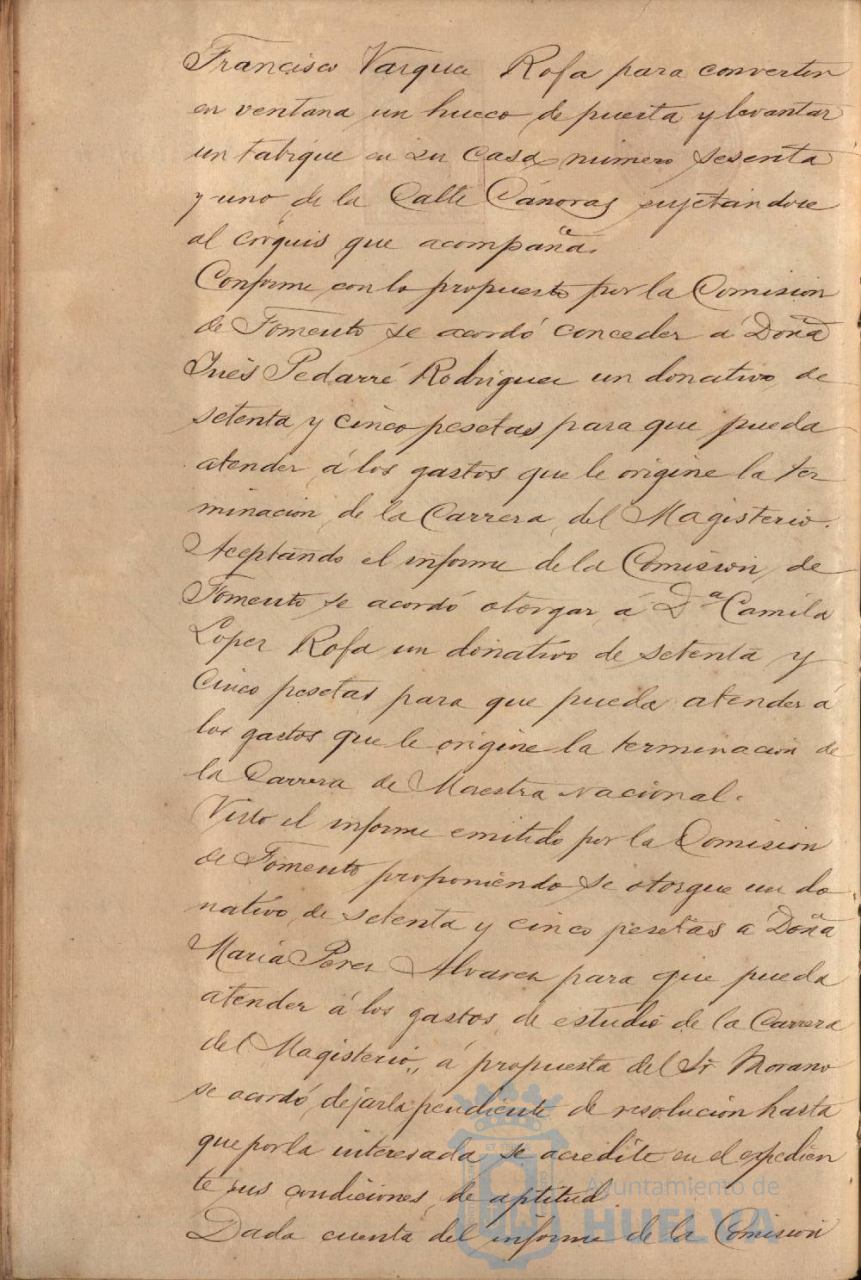 Francisco Varquez Rofa para convertir
en ventana un hueco de puerta y levantar
un tabique en su casa número sesenta
y uno de la Calle Cánovas sujetándose
al cróquis que acompaña.
Conforme con lo propuesto por la Comision
de Fomento se acordó conceder á Doña
Inés Pedarré Rodriguez un donativo de
setenta y cinco pesetas para que pueda
atender á los gastos que le origine la ter
minacion de la Carrera del Magisterio.
Aceptando el informe de la Comision de
Fomento se acordó otorgar á Dª Camila
Lopez Rofa un donativo de setenta y
cinco pesetas para que pueda atender á
los gastos que le origine la terminacion de
la Carrera de Maestra Nacional.
Visto el informe emitido por la Comision
de Fomento proponiendo se otorgue un do
nativo de setenta y cinco pesetas a Doña
María Perez Alvarez para que pueda
atender á los gastos de estudio de la Carrera
del Magisterio, á propuesta del Sr Morano
se acordó dejarla pendiente de resolucion hasta
que por la interesada se acredite en el expedien
te sus condiciones de aptitud.
Dada cuenta del informe de la Comision
Ayuntamiento de
HUELVA